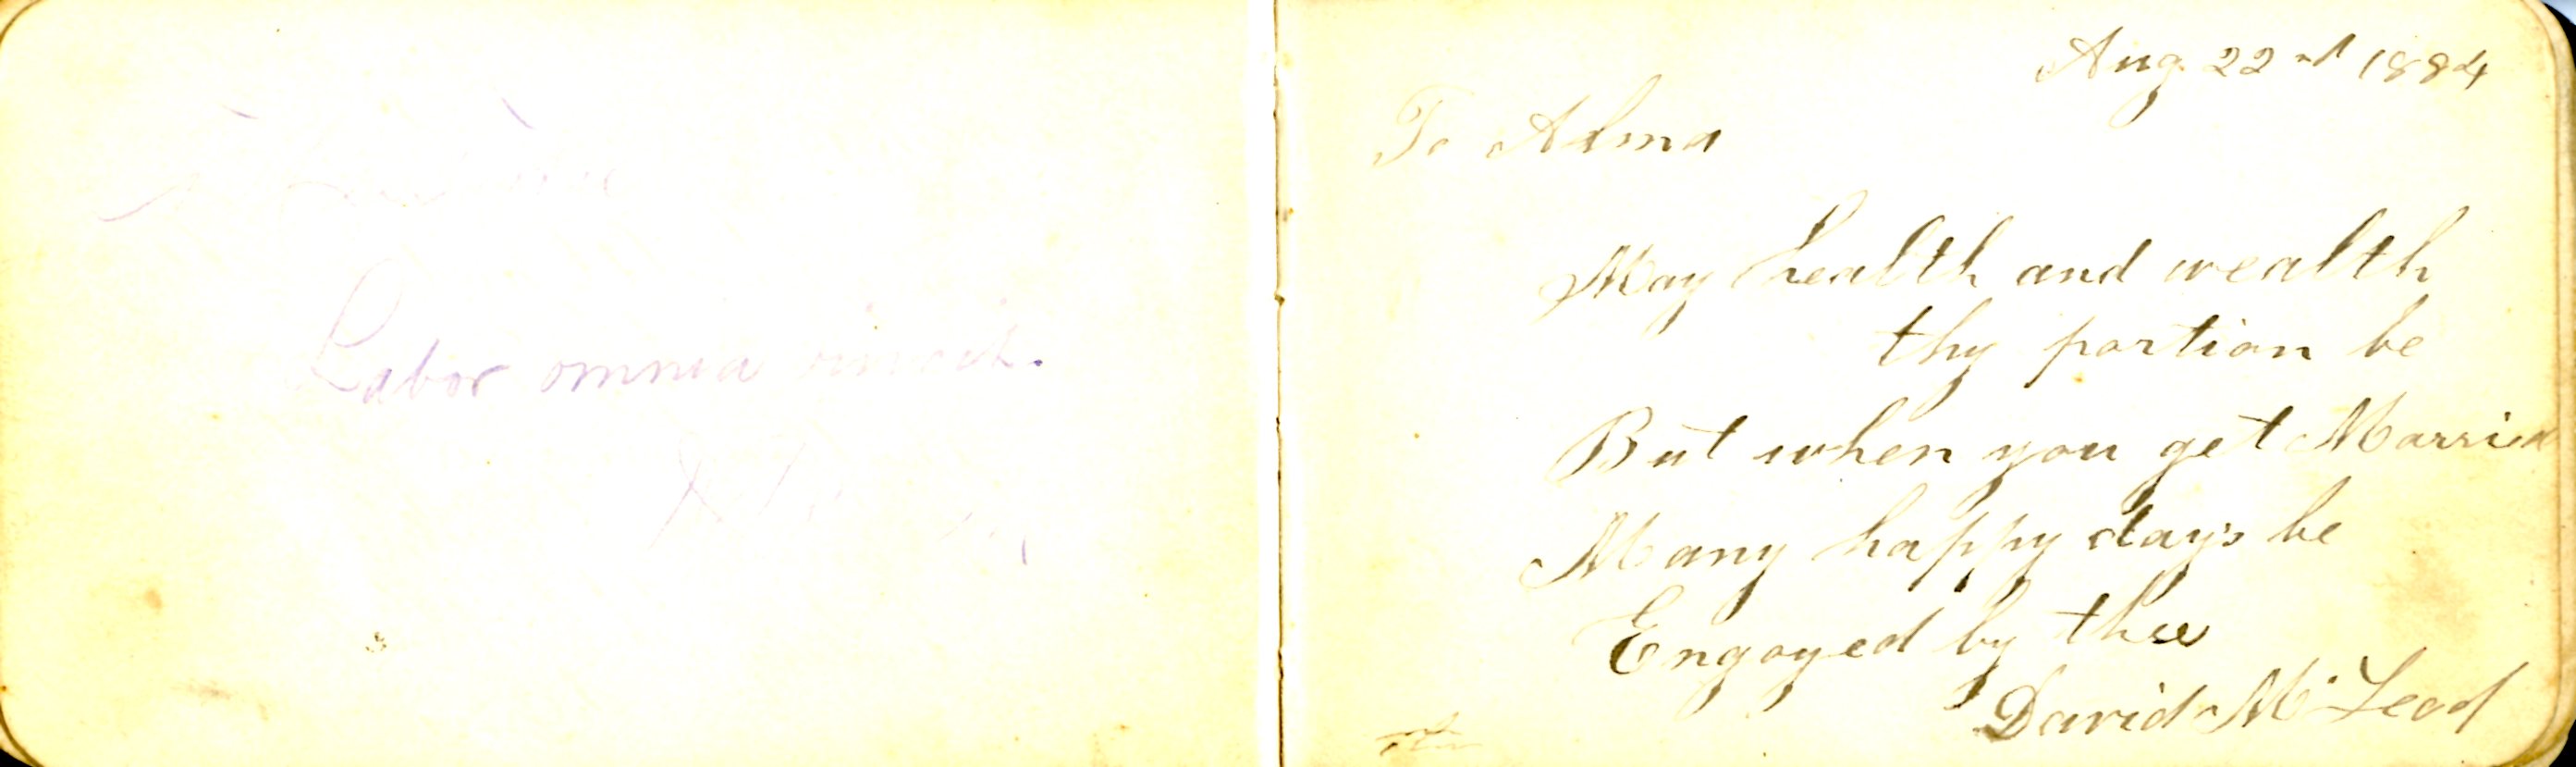 Labor omnia vincit.
Aug 22nd 1884
To Alma
May health and wealth
thy portion be
But when you get Married
Many happy days be
Engoyed by thee
David McLeod